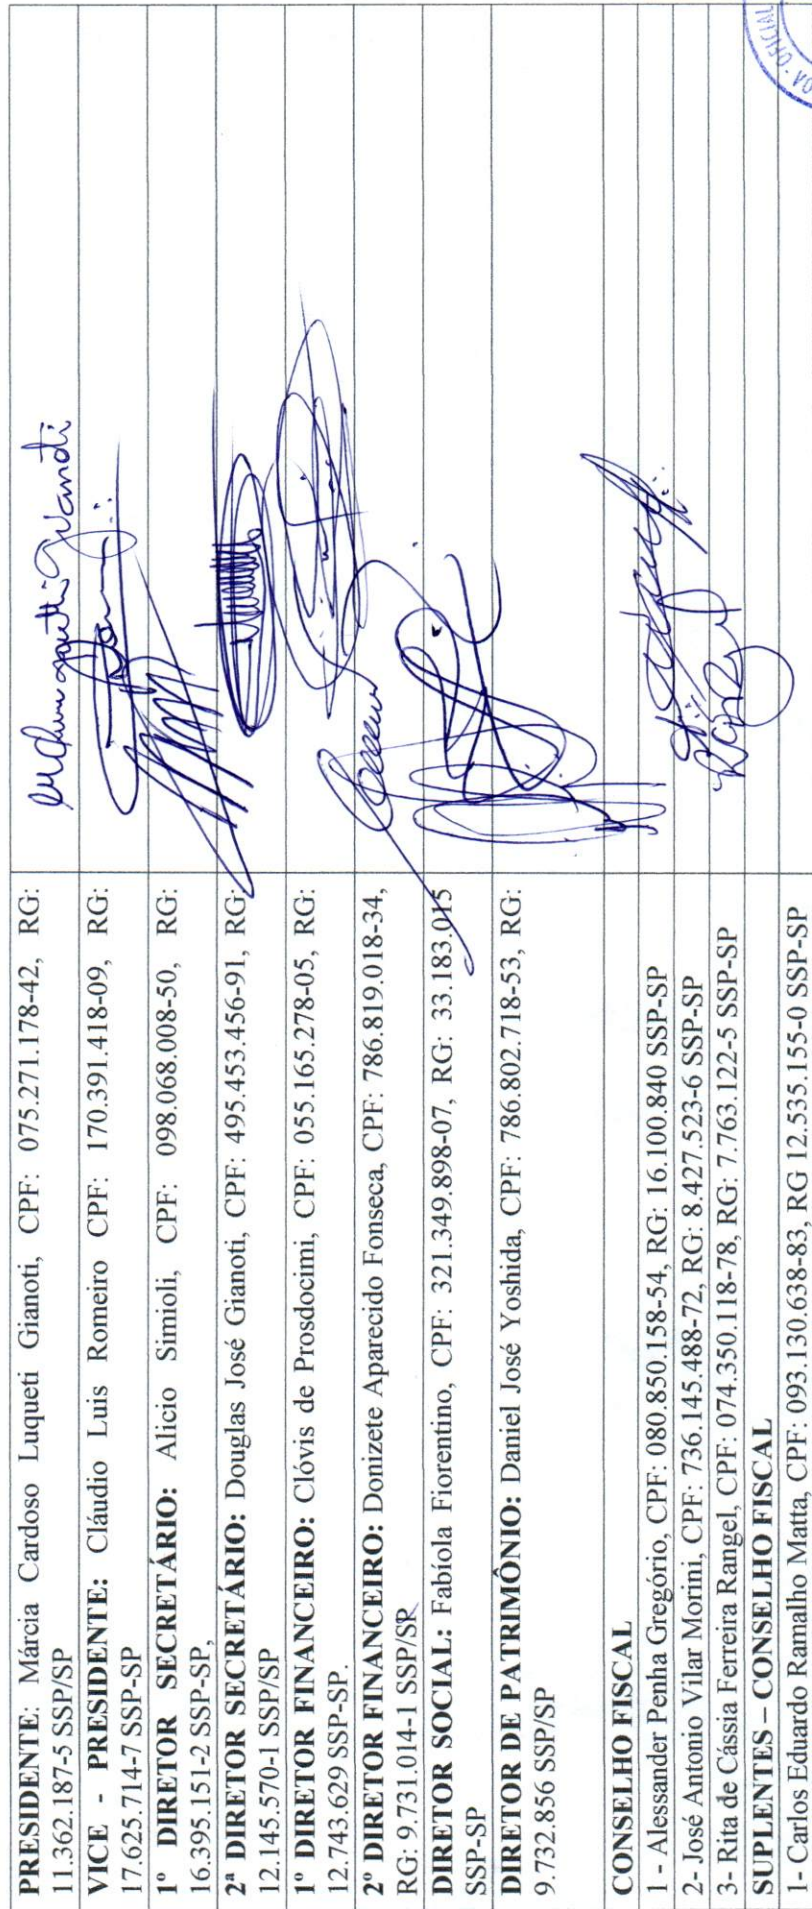 PRESIDENTE: Márcia Cardoso Luqueti Gianoti, CPF: 075.271.178-42, RG:
11.362.187-5 SSP/SP
VICE - PRESIDENTE: Cláudio Luis Romeiro CPF: 170.391.418-09, RG:
17.625.714-7 SSP-SP
1º DIRETOR SECRETÁRIO: Alicio Simioli, CPF: 098.068.008-50, RG:
16.395.151-2 SSP-SP,
2ª DIRETOR SECRETÁRIO: Douglas José Gianoti, CPF: 495.453.456-91, RG:
12.145.570-1 SSP/SP
1º DIRETOR FINANCEIRO: Clóvis de Prosdocimi, CPF: 055.165.278-05, RG:
12.743.629 SSP-SP.
2º DIRETOR FINANCEIRO: Donizete Aparecido Fonseca, CPF: 786.819.018-34,
RG: 9.731.014-1 SSP/SP
DIRETOR SOCIAL: Fabíola Fiorentino, CPF: 321.349.898-07, RG: 33.183.015
SSP-SP
DIRETOR DE PATRIMÔNIO: Daniel José Yoshida, CPF: 786.802.718-53, RG:
9.732.856 SSP/SP
CONSELHO FISCAL
1 - Alessander Penha Gregório, CPF: 080.850.158-54, RG: 16.100.840 SSP-SP
2- José Antonio Vilar Morini, CPF: 736.145.488-72, RG: 8.427.523-6 SSP-SP
3- Rita de Cássia Ferreira Rangel, CPF: 074.350.118-78, RG: 7.763.122-5 SSP-SP
SUPLENTES – CONSELHO FISCAL
1- Carlos Eduardo Ramalho Matta, CPF: 093.130.638-83, RG 12.535.155-0 SSP-SP
OFICIAL